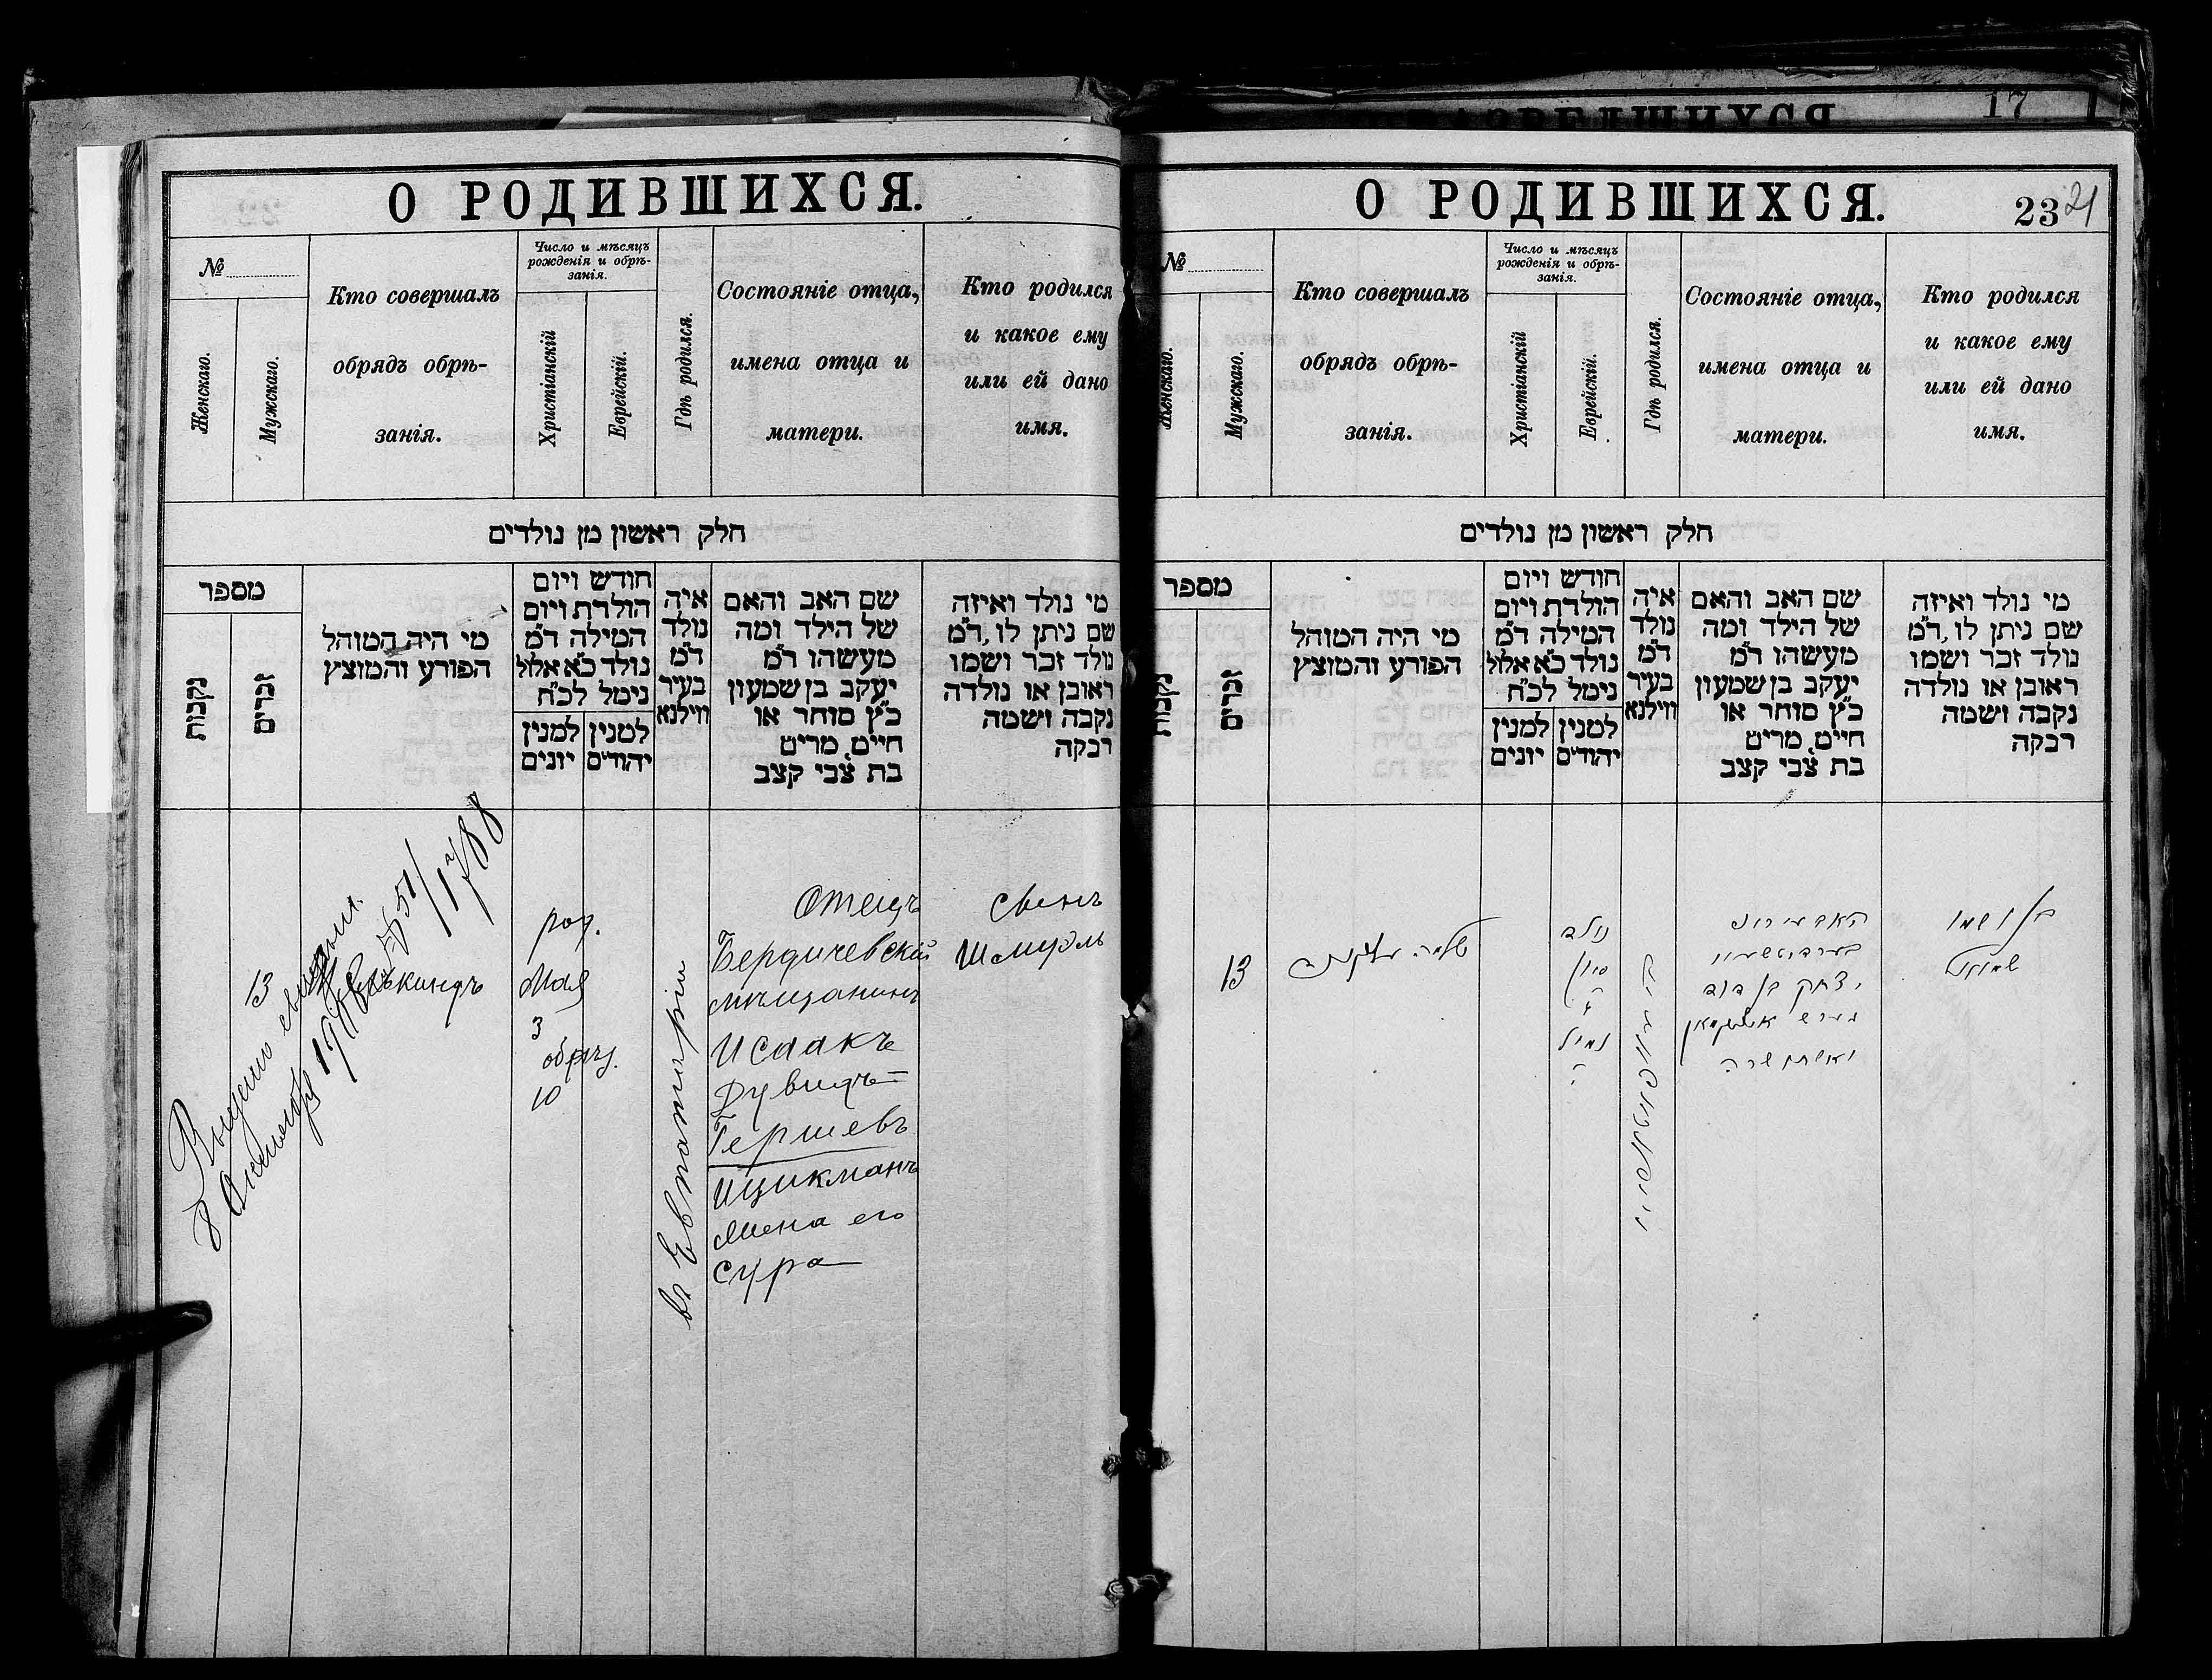 17
О РОДИВШИХСЯ.
№
Женскаго.
Мужскаго.
Кто совершалъ
обрядъ обрѣ-
занія.
Число и мѣсяцъ
рожденія и обрѣ-
занія.
Христіанскій
Еврейскій.
Гдѣ родился.
Состояніе отца,
имена отца и
матери.
Кто родился
и какое ему
или ей дано
имя.
חלק ראשון מן נולדים
מספר
נקבות
זכרים
מי היה המוהל
הפורע והמוצץ
חודש ויום
הולדת ויום
המילה ד״מ
נולד כ״א אלול
נימל לכ״ח
למנין
יהודים
למנין
יונים
איה
נולד
ד״מ
בעיר
ווילנא
שם האב והאם
של הילד ומה
מעשהו ד״מ
יעקב בן שמעון
כ״ץ סוחר או
חיים, מרים
בת צבי קצב
מי נולד ואיזה
שם ניתן לו, ד״מ
נולד זכר ושמו
ראובן או נולדה
נקבה ושמה
רבקה
13
род.
Мая
3
обрѣз.
10
въ Евпаторіи
Отецъ
Бердичевскій
мѣщанинъ
Исаакъ
Дувидъ
Гершевъ
Ицикманъ
Жена его
Сура
Сынъ
Шмуэль
О РОДИВШИХСЯ.
23 21
№
Женскаго.
Мужскаго.
Кто совершалъ
обрядъ обрѣ-
занія.
Число и мѣсяцъ
рожденія и обрѣ-
занія.
Христіанскій
Еврейскій.
Гдѣ родился.
Состояніе отца,
имена отца и
матери.
Кто родился
и какое ему
или ей дано
имя.
חלק ראשון מן נולדים
מספר
נקבות
זכרים
מי היה המוהל
הפורע והמוצץ
חודש ויום
הולדת ויום
המילה ד״מ
נולד כ״א אלול
נימל לכ״ח
למנין
יהודים
למנין
יונים
איה
נולד
ד״מ
בעיר
ווילנא
שם האב והאם
של הילד ומה
מעשהו ד״מ
יעקב בן שמעון
כ״ץ סוחר או
חיים, מרים
בת צבי קצב
מי נולד ואיזה
שם ניתן לו, ד״מ
נולד זכר ושמו
ראובן או נולדה
נקבה ושמה
רבקה
13
נולד
סיון
נמול
יצחק בן דוד
ואשתו שרה
בן ושמו
שמואל